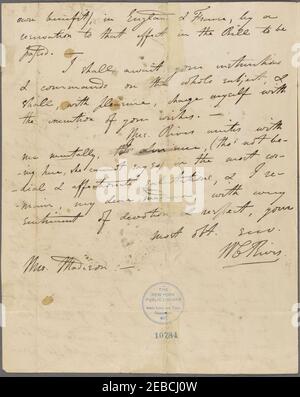 own benefit, in England & France, by a
reservation to that effect in the Bill to be
passed.
I shall await your instructions
& commands on the whole subject, &
shall, with pleasure, charge myself with
the execution of your wishes. —
Mrs. Rives unites with
me mentally, (tho' not be-
ing here, she cannot in the most cor-
dial & affectionate salutations, & I re-
main my dear with every
sentiment of devotion & respect, your
most obt. serv.
W C Rives
Mrs. Madison —
THE
NEW YORK
PUBLIC LIBRARY
10784
alamy
Image ID: 2EBCJ0W
www.alamy.com